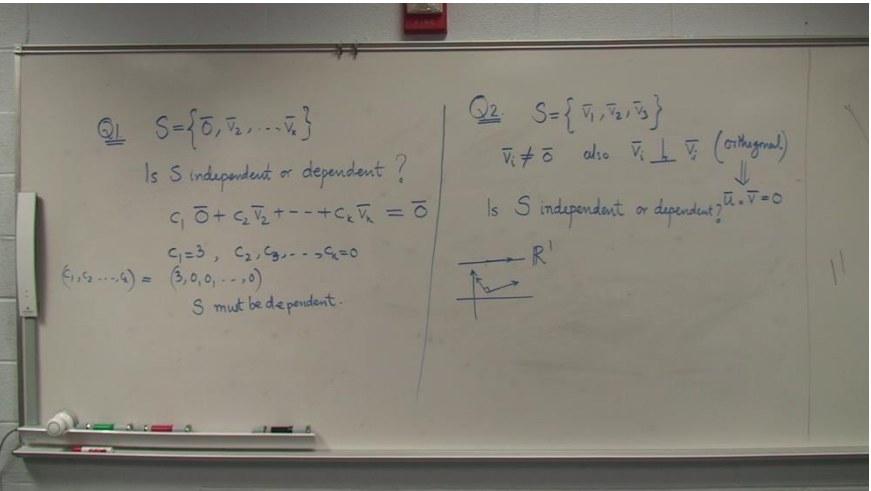 Q1 S={0̅, v̅₂, ... v̅ₖ}
Is S independent or dependent?
c₁ 0̅ + c₂ v̅₂ + --- + cₖ v̅ₖ = 0̅
c₁=3, c₂, c₃, ---, cₖ=0
(c₁, c₂ ---, cₖ) = (3,0,0, ---, 0)
S must be dependent.
Q2. S={ v̅₁, v̅₂, v̅₃}
v̅ᵢ ≠ 0̅ also v̅ᵢ ⊥ v̅ⱼ (orthogonal)
⇓
u̅ . v̅ = 0
Is S independent or dependent?
ℝ¹